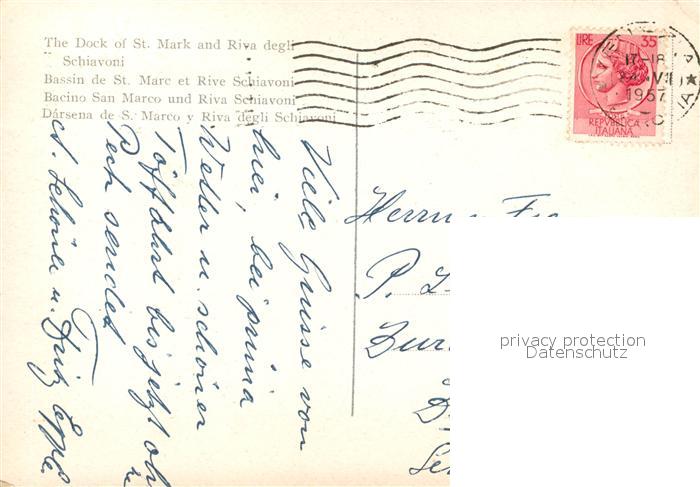 The Dock of St. Mark and Riva degli
Schiavoni
Bassin de St. Marc et Rive Schiavoni
Bacino San Marco und Riva Schiavoni
Dársena de S. Marco y Riva degli Schiavoni
LIRE 35
REPVBBLICA
ITALIANA
17-18
1957
Viele Grüsse von
hier, bei prima
Wetter u. schöner
Töfffahrt bis jetzt oh
Pech sendet
Fritz
Herrn u. Fra
P.
Zur
privacy protection
Datenschutz